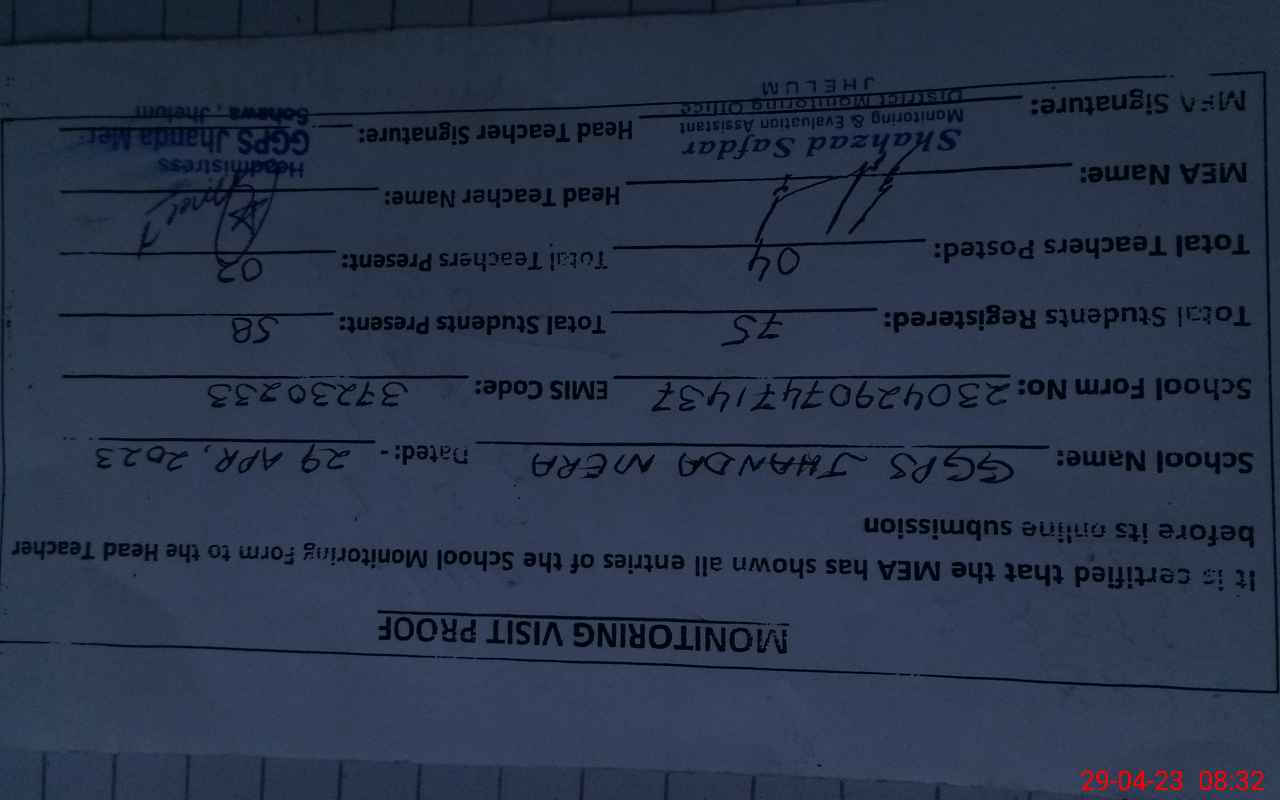 MONITORING VISIT PROOF
It is certified that the MEA has shown all entries of the School Monitoring Form to the Head Teacher
before its online submission
School Name: GGPS JHANDA MERA Dated: - 29 APR, 2023
School Form No: 23042907471437 EMIS Code: 37230233
Total Students Registered: 75 Total Students Present: 58
Total Teachers Posted: 04 Total Teachers Present: 02
MEA Name: Head Teacher Name:
Headmistress
Shahzad Safdar GGPS Jhanda Mer
Monitoring & Evaluation Assistant
MEA Signature: Head Teacher Signature:
District Monitoring Office Sohawa, Jhelum
JHELUM
29-04-23 08:32